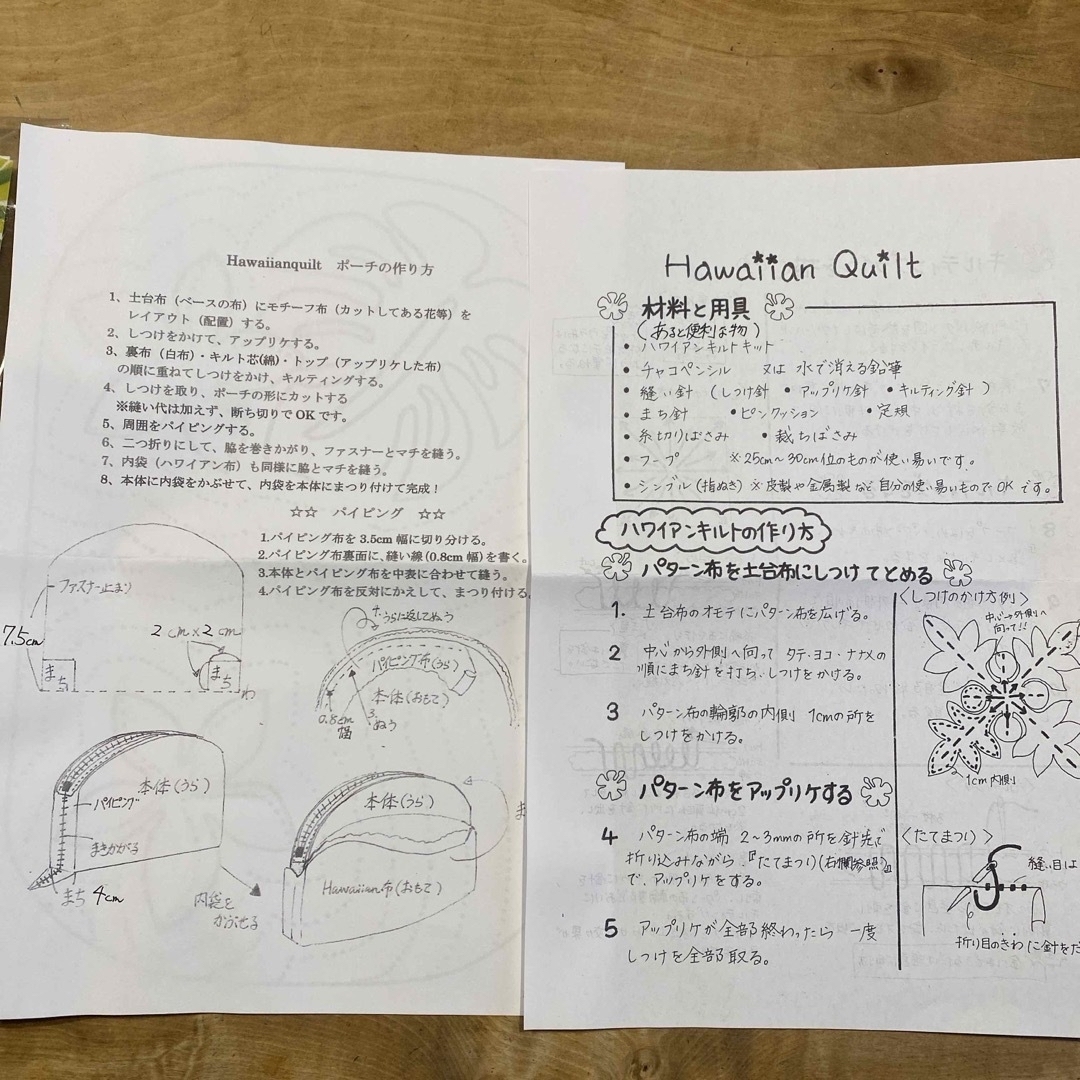 Hawaiianquilt ポーチの作り方
1、土台布(ベースの布)にモチーフ布(カットしてある花等)を
レイアウト(配置)する。
2、しつけをかけて、アップリケする。
3、裏布(白布)・キルト芯(綿)・トップ(アップリケした布)
の順に重ねてしつけをかけ、キルティングする。
4、しつけを取り、ポーチの形にカットする
※縫い代は加えず、断ち切りでOKです。
5、周囲をパイピングする。
6、二つ折りにして、脇を巻きかがり、ファスナーとマチを縫う。
7、内袋(ハワイアン布)も同様に脇とマチを縫う。
8、本体に内袋をかぶせて、内袋を本体にまつり付けて完成!
☆☆ パイピング ☆☆
1.パイピング布を3.5cm幅に切り分ける。
2.パイピング布裏面に、縫い線(0.8cm幅)を書く。
3.本体とパイピング布を中表に合わせて縫う。
4.パイピング布を反対にかえして、まつり付ける
ファスナー止まり
7.5cm
2cm×2cm
まち
まち
わ
4.
うらに返してぬう
パイピング布(うら)
本体(おもて)
0.8cm
幅
3.
ぬう
本体(うら)
パイピング
まきかがる
まち 4cm
内袋を
かぶせる
本体(うら)
Hawaiian布(おもて)
Hawaiian Quilt
材料と用具
(あると便利な物)
• ハワイアンキルトキット
• チャコペンシル 又は 水で消える鉛筆
• 縫い針 (しつけ針 • アップリケ針 • キルティング針)
• まち針 • ピンクッション • 定規
• 糸切りばさみ • 裁ちばさみ
• フープ ※25cm~30cm位のものが使い易いです。
• シンブル(指ぬき) ※皮製や金属製など自分の使い易いものでOKです。
ハワイアンキルトの作り方
パターン布を土台布にしつけてとめる
1. 土台布のオモテにパターン布を広げる。
2 中心から外側へ向って タテ・ヨコ・ナナメの
順にまち針を打ち、しつけをかける。
3 パターン布の輪郭の内側 1cmの所を
しつけをかける。
〈しつけのかけ方例〉
中心→外側へ
向って!!
1cm内側
パターン布をアップリケする
4 パターン布の端 2~3mmの所を針先で
折り込みながら『たてまつり』(右欄参照)
で、アップリケをする。
5 アップリケが全部終わったら 一度
しつけを全部取る。
〈たてまつり〉
縫い目は
折り目のきわに針を